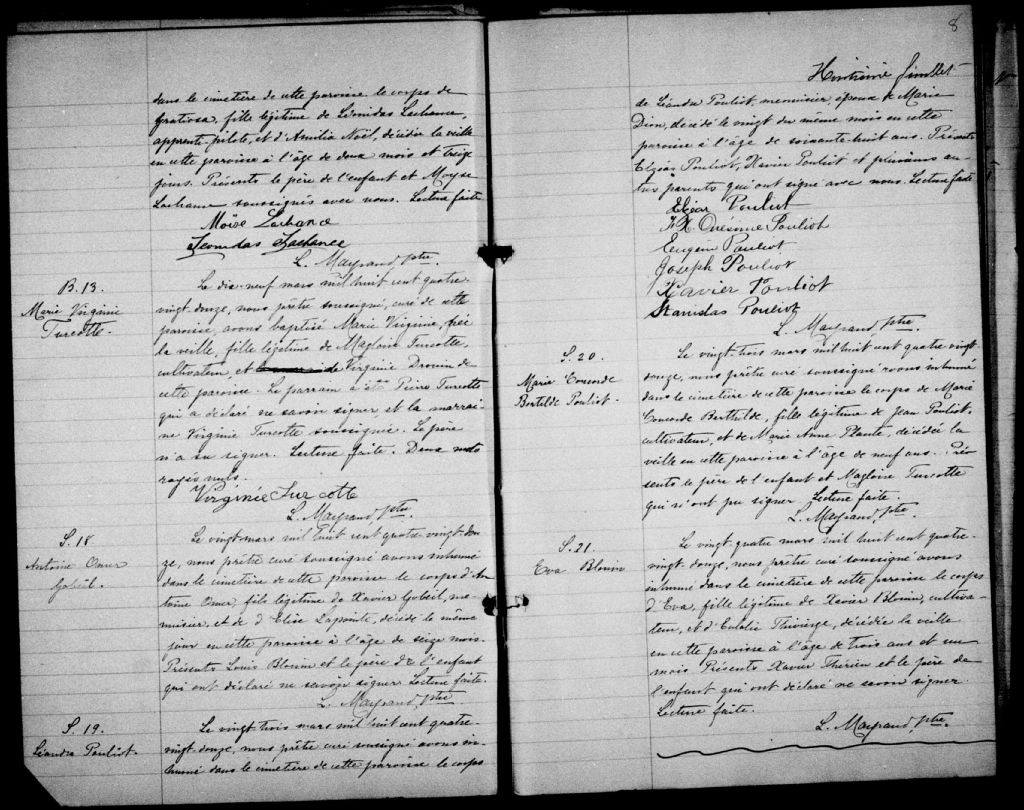 dans le cimetière de cette paroisse le corps de
Gratiosa, fille légitime de Léonidas Lachance,
apprenti-pilote, et d'Amélia Noël, décédée la veille
en cette paroisse à l'âge de deux mois et treize
jours. Présents le père de l'enfant et Moyse
Lachance soussignés avec nous. Lecture faite
Moïse Lachance
Leonidas Lachance
L. Mayrand ptre
B. 13.
Marie Virginie
Turcotte.
Le dix-neuf mars mil huit cent quatre-
vingt-douze, nous prêtre soussigné, curé de cette
paroisse, avons baptisé Marie Virginie, née
la veille, fille légitime de Magloire Turcotte,
cultivateur, et de Virginie Drouin de
cette paroisse. Le parrain a été Pierre Turcotte
qui a déclaré ne savoir signer et la marrai-
ne Virginie Turcotte soussignée. Le père
n'a su signer. Lecture faite. Deux mots
rayés nuls.
Virginie Turcotte
L. Mayrand ptre
S. 18
Antoine Omer
Gobeil.
Le vingt mars mil huit cent quatre-vingt-dou-
ze, nous prêtre curé soussigné avons inhumé
dans le cimetière de cette paroisse le corps d'An-
toine Omer, fils légitime de Xavier Gobeil, me-
nuisier, et de d'Elise Lapointe, décédé le même
jour en cette paroisse à l'âge de seize mois.
Présents Louis Blouin et le père de l'enfant
qui ont déclaré ne savoir signer. Lecture faite.
L. Mayrand ptre
S. 19.
Léandre Pouliot.
Le vingt-trois mars mil huit cent quatre-
vingt-douze, nous prêtre curé soussigné avons in-
humé dans le cimetière de cette paroisse le corps
8
Huitième feuillet
de Léandre Pouliot, menuisier, époux de Marie
Dion, décédé le vingt du même mois en cette
paroisse à l'âge de soixante-huit ans. Présents
Elzéar Pouliot, Xavier Pouliot et plusieurs au-
tres parents qui ont signé avec nous. Lecture faite
Elzéar Pouliot
F. X. Onésime Pouliot
Eugène Pouliot
Joseph Pouliot
Xavier Pouliot
Stanislas Pouliot
L. Mayrand ptre
S. 20.
Marie
Bertilde Pouliot.
Le vingt-trois mars mil huit cent quatre vingt-
douze, nous prêtre curé soussigné avons inhumé
dans le cimetière de cette paroisse le corps de Marie
Berthilde, fille légitime de Jean Pouliot,
cultivateur, et de Marie Anne Plante, décédée la
veille en cette paroisse à l'âge de neuf ans. Pré-
sents le père de l'enfant et Magloire Turcotte
qui n'ont pu signer. Lecture faite.
L. Mayrand ptre.
S. 21.
Eva Blouin
Le vingt-quatre mars mil huit cent quatre-
vingt-douze, nous prêtre curé soussigné avons
inhumé dans le cimetière de cette paroisse le corps
d'Eva, fille légitime de Xavier Blouin, cultiva-
teur, et d'Eulalie Thivierge, décédée la veille
en cette paroisse à l'âge de trois ans et un
mois Présents Xavier Thérien et le père de
l'enfant qui ont déclaré ne savoir signer.
Lecture faite.
L. Mayrand ptre.